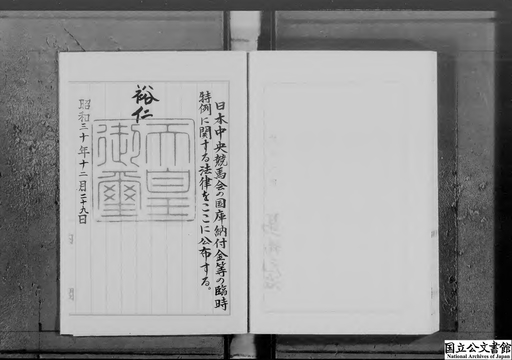 日本中央競馬会の国庫納付金等の臨時
特例に関する法律をここに公布する。
裕仁
天皇
御璽
昭和三十年十二月二十九日
国立公文書館
National Archives of Japan